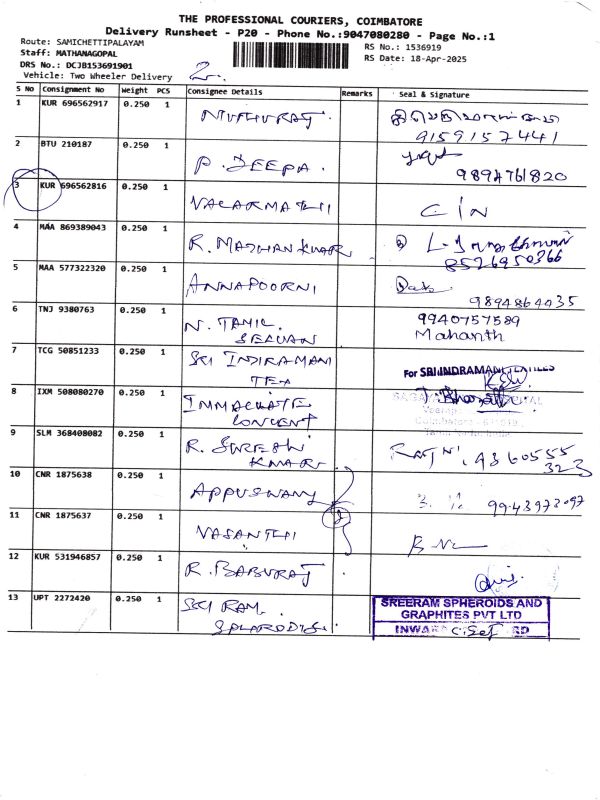 THE PROFESSIONAL COURIERS, COIMBATORE
Delivery Runsheet - P20 - Phone No.:9047080280 - Page No.:1
Route: SAMICHETTIPALAYAM
Staff: MATHANAGOPAL
DRS No.: DCJB153691901
Vehicle: Two Wheeler Delivery
2.
RS No.: 1536919
RS Date: 18-Apr-2025
S No Consignment No Weight PCS Consignee Details Remarks Seal & Signature
1 KUR 696562917 0.250 1 MUTHURAJ.
9159157441
2 BTU 210187 0.250 1 P. DEEPA.
9894761820
3 KUR 696562816 0.250 1 VALARMATHI C/N
4 MAA 869389043 0.250 1 R. MATHAN KUMAR
8526950366
5 MAA 577322320 0.250 1 ANNAPOORNI
9894864035
6 TNJ 9380763 0.250 1 N. TAMIL SELVAN 9940757589
Mahanth
7 TCG 50851233 0.250 1 SRI INDIRAMANI TEX For SRI INDRAMANI TEXTILES
8 IXM 508080270 0.250 1 IMMACULATE CONVENT
9 SLM 368408082 0.250 1 R. SURESH KUMAR 9360555
323
10 CNR 1875638 0.250 1 APPUSWAMY 9943973097
11 CNR 1875637 0.250 1 VASANTHI
12 KUR 531946857 0.250 1 R. BABURAJ
13 UPT 2272420 0.250 1 SRI RAM SREERAM SPHEROIDS AND
GRAPHITES PVT LTD
INWARD